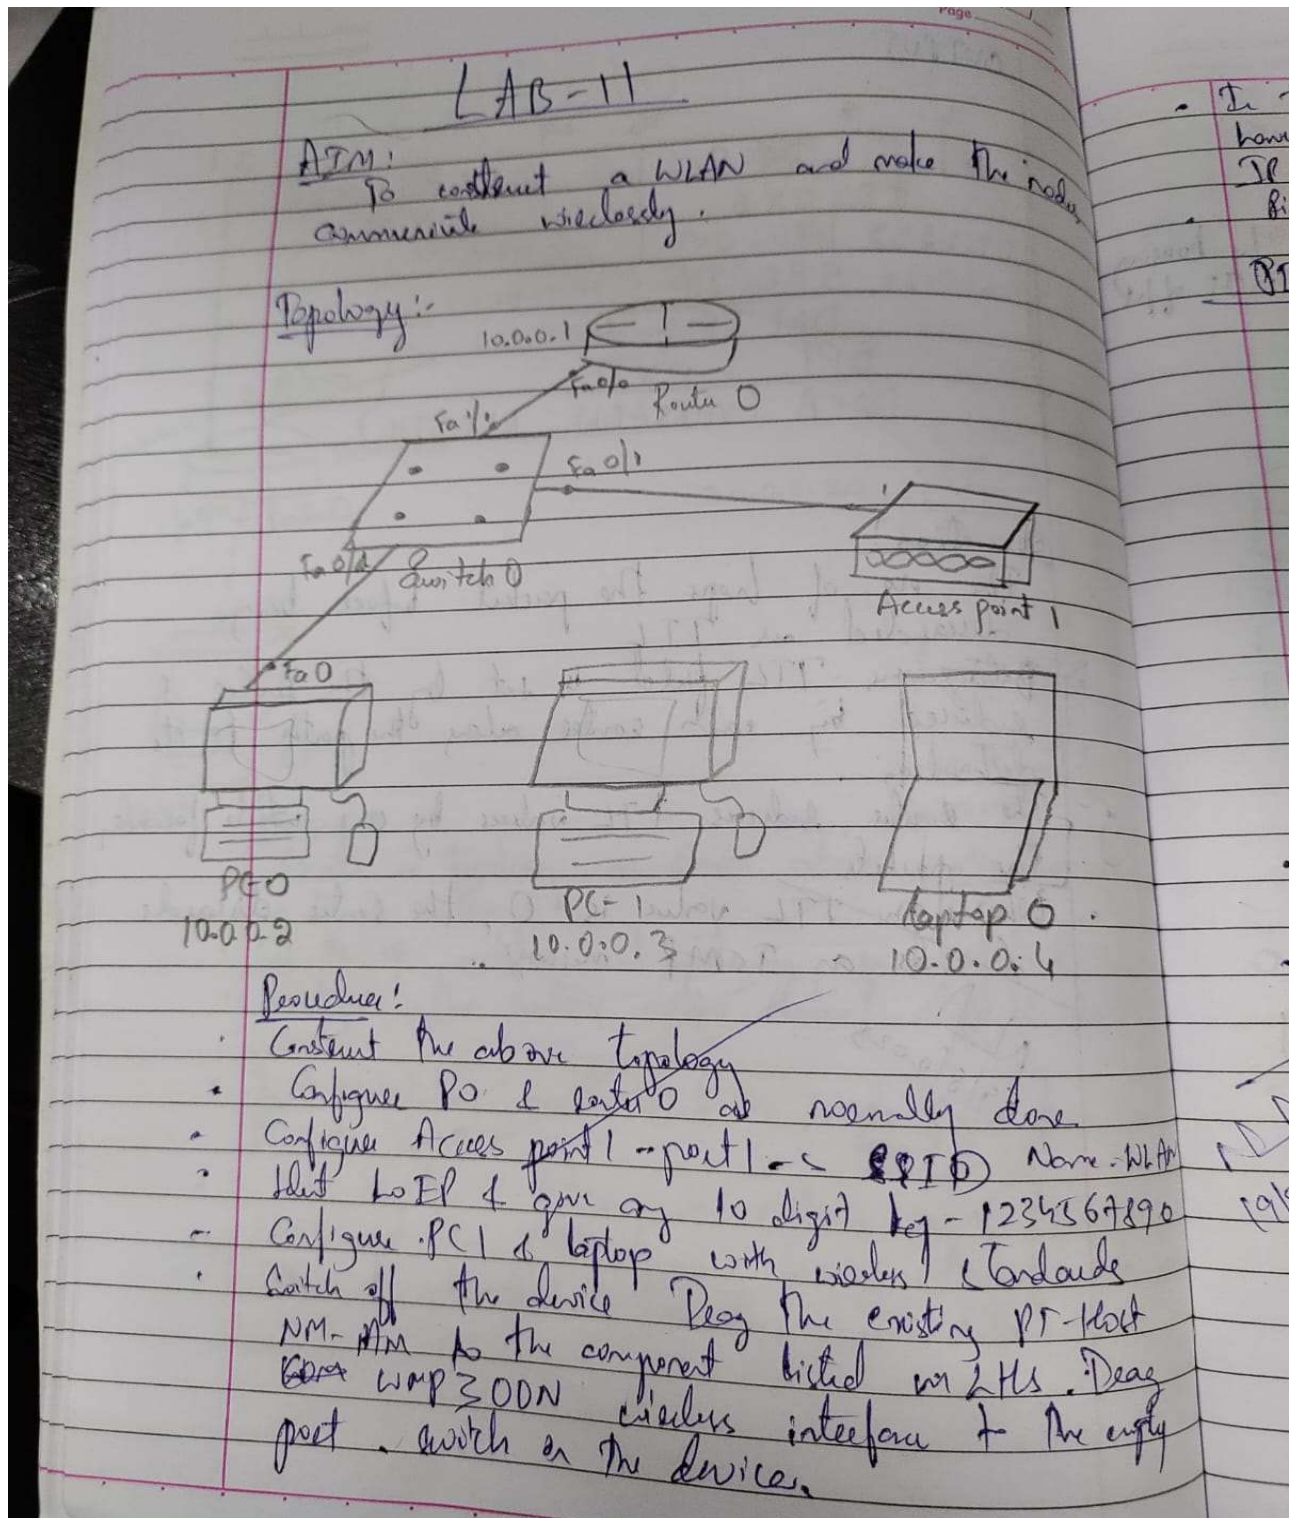 Page
LAB-11
AIM:
To construct a WLAN and make the nodes
communicate wirelessly.
Topology:-
10.0.0.1
Fa0/0
Router 0
Fa 1/1
Fa 0/1
Fa 0/2
Switch 0
Access point 1
Fa 0
PC-0
10.0.0.2
PC-1
10.0.0.3
Laptop 0
10.0.0.4
Procedure:
Construct the above topology
Configure P0 & router 0 as normally done
Configure Access point 1 - port 1 - SSID Name - WLAN
WEP & give any 10 digit key - 1234567890
Configure PC1 & laptop with wireless standards
Switch off the device Drag the existing PT-Host
NM-AM to the component listed in LHS. Drag
WMP300N wireless interface to the empty
port. switch on the device.